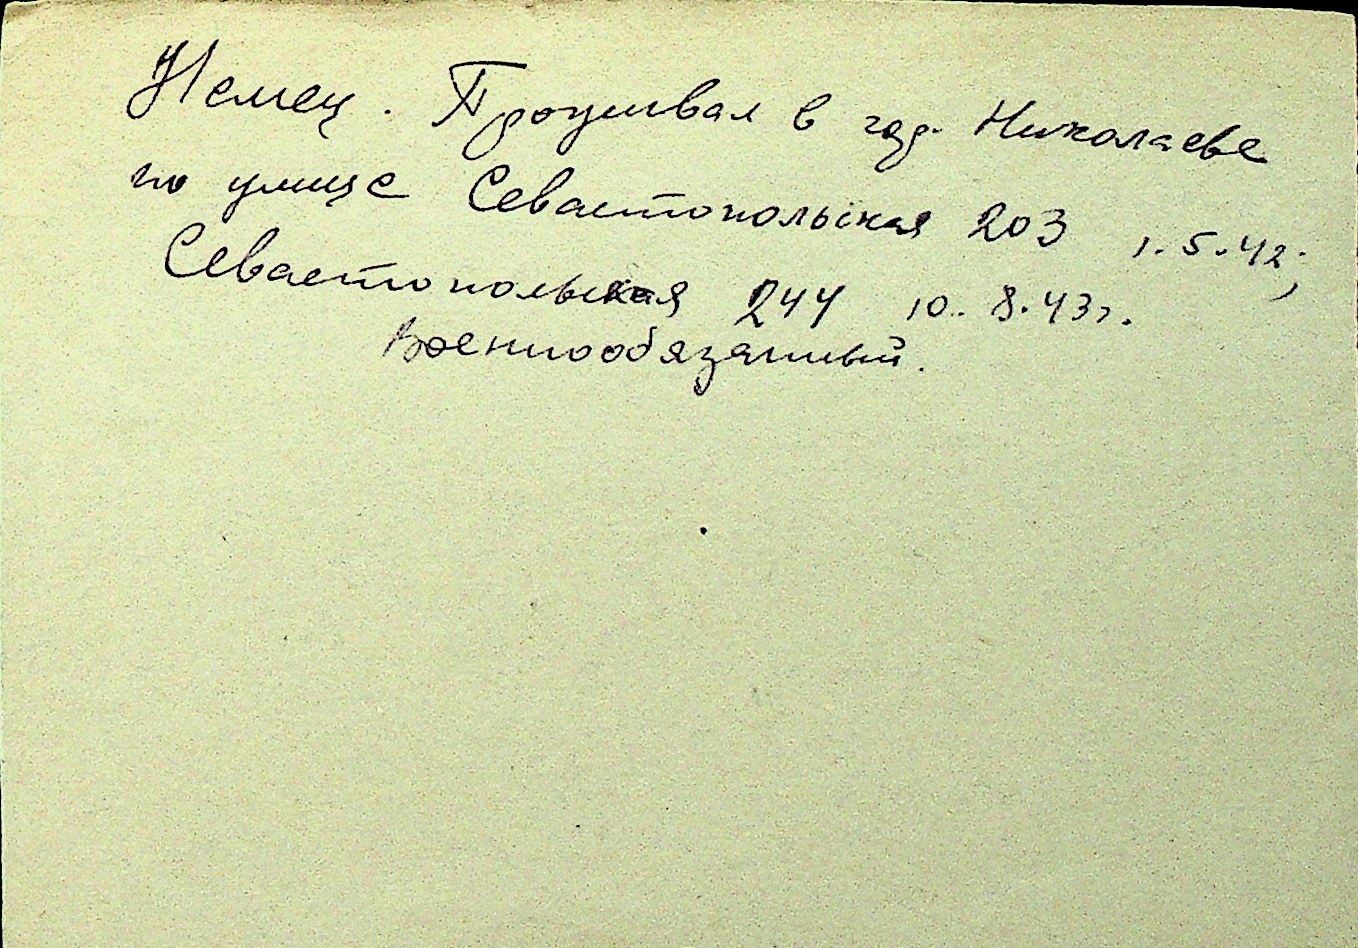 Немец. Проживал в гор. Николаеве
по улице Севастопольская 203 1.5.42;
Севастопольская 244 10.8.43г.
Военнообязанный.